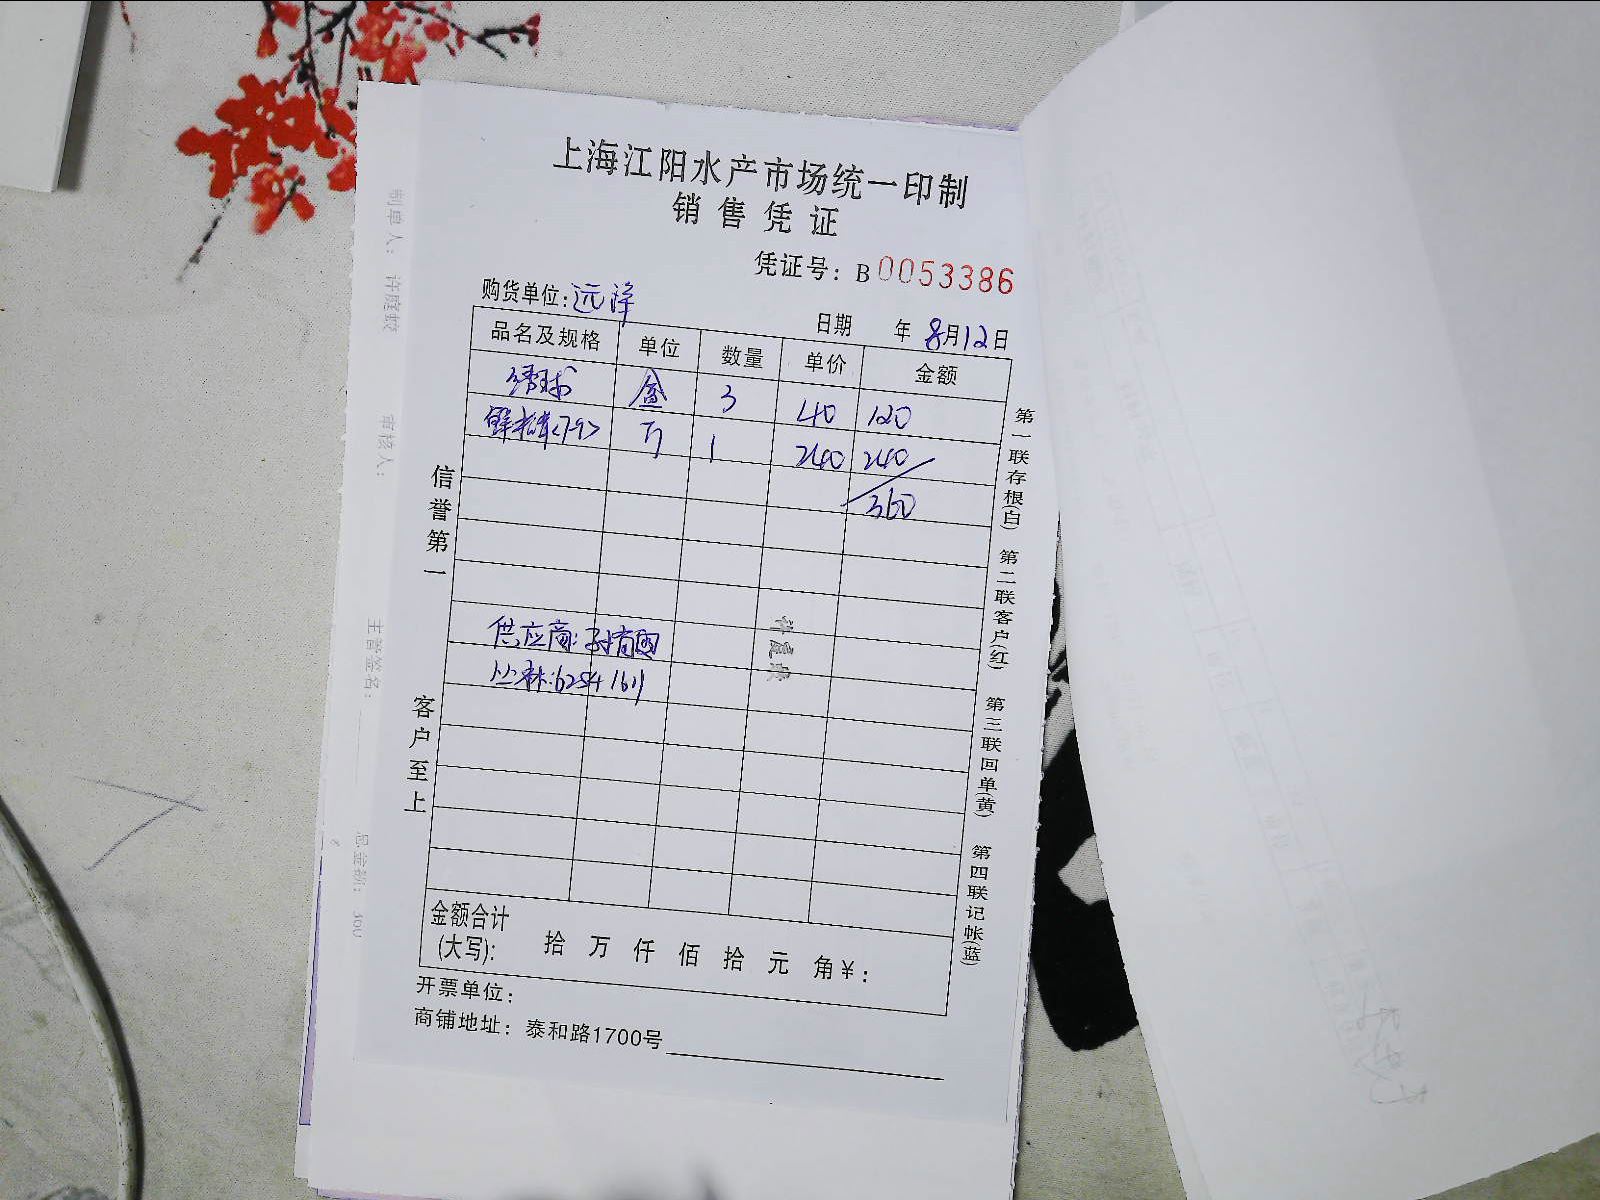 上海江阳水产市场统一印制
销售凭证
凭证号：B 0053386
购货单位：远洋
日期 年 8月12日
品名及规格 单位 数量 单价 金额
绣球 盒 3 40 120
鲜 <7-9> 1 240 240
360
供应商：孙
6254 1611
信誉第一
客户至上
第一联存根(白) 第二联客户(红) 第三联回单(黄) 第四联记帐(蓝)
金额合计
(大写)： 拾 万 仟 佰 拾 元 角￥：
开票单位：
商铺地址：泰和路1700号
制单人：
审核人：
主管签名：